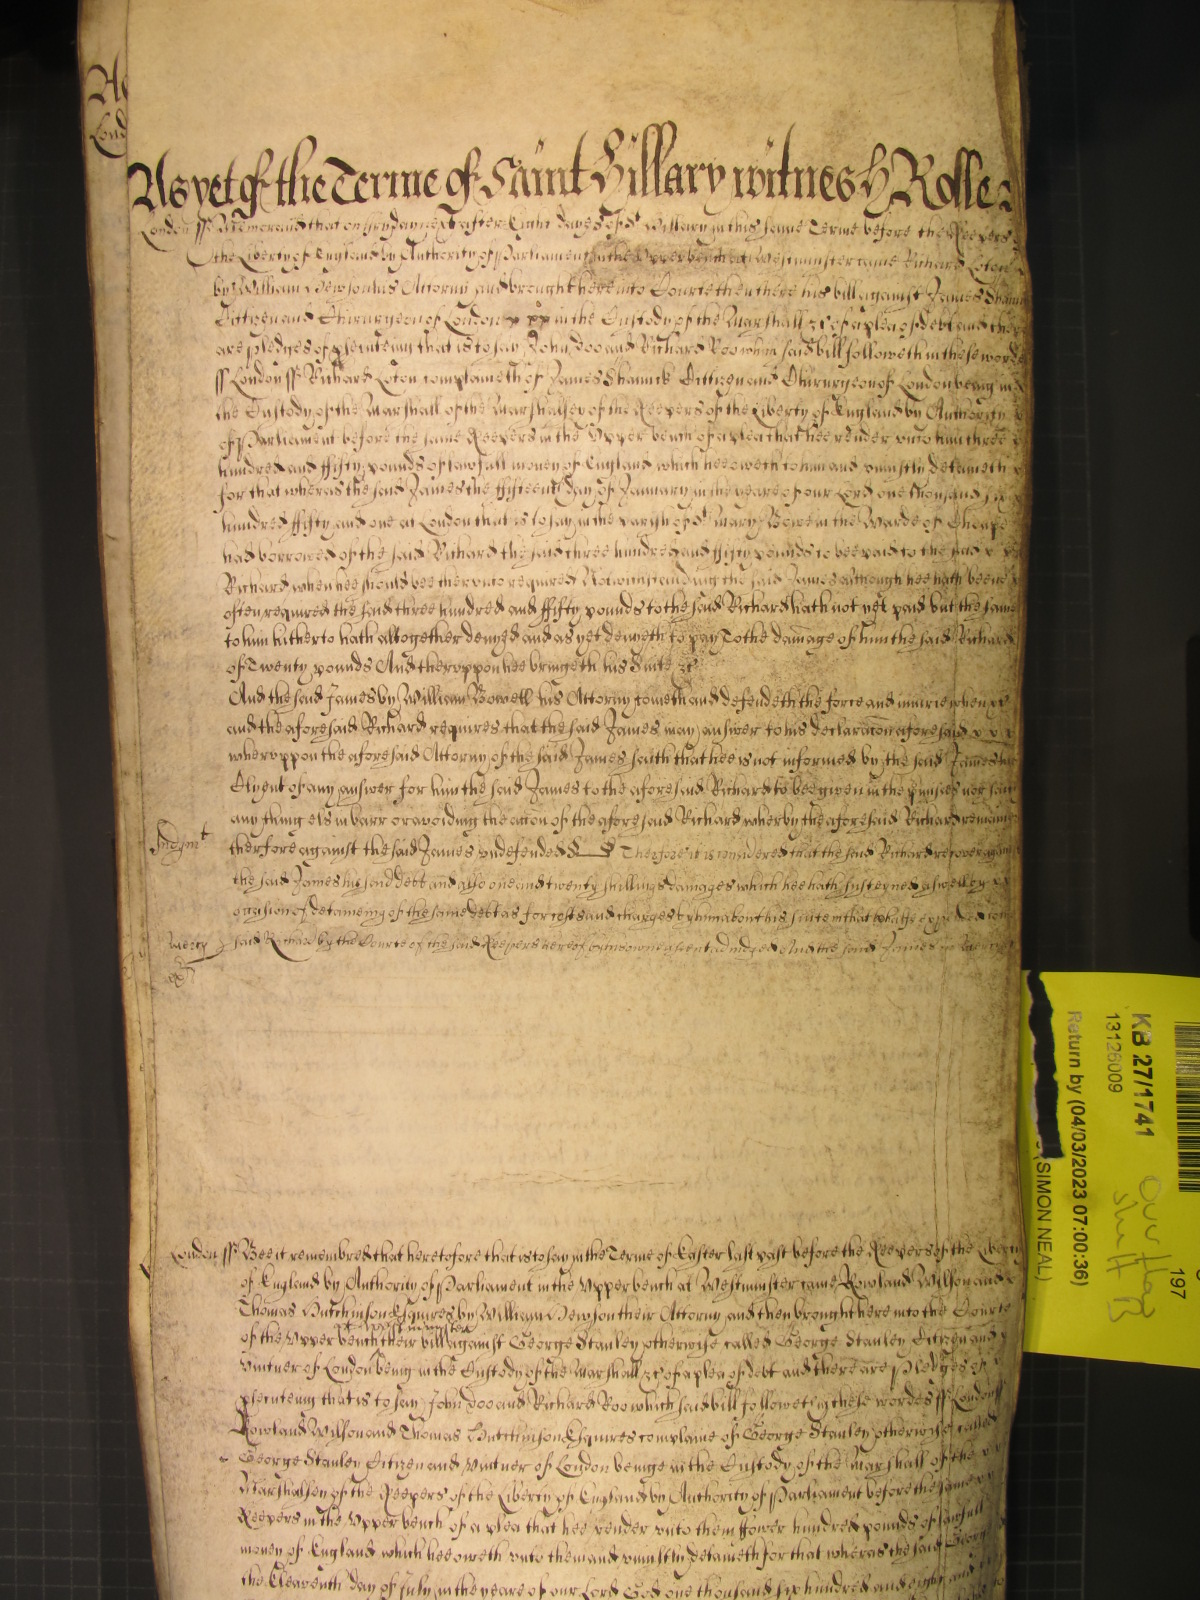 As yet of the Terme of Saint Hillary witnes H Rolle
London ss Memorand that on fryday next after Eight dayes of St Hillary in this same Terme before the Keepers of
the Liberty of England by Authority of Parliament in the Upper bench at Westminster came Richard Coton
by William Hewson his Attorny and brought here into Courte then there his bill against James Shannick
Cittizen and Chirurgeon of London x xx in the Custody of the Marshall &c of a plea of debt and there
are pledges of pleinteing that is to say John Doo and Richard Roo which said bill followeth in these wordes
ss London ss Richard Coton complaineth of James Shannick Cittizen and Chirurgeon of London being in
the Custody of the Marshall of the Marshalsey of the Keepers of the Liberty of England by Authority
of Parliament before the same Keepers in the Upper bench of a plea that hee render unto him three
hundred and fifty pounds of lawfull money of England which hee oweth to him and uniustly deteineth
for that wheras the said James the fifteenth day of January in the yeare of our Lord one thousand six
hundred fifty and one at London that is to say in the parish of St Mary Bowe in the Warde of Cheape
had borrowed of the said Richard the said three hundred and fifty pounds to bee paid to the said
Richard when hee should bee therunto required Notwithstanding the said James although hee hath beene
often required the said three hundred and fifty pounds to the said Richard hath not yet paid but the same
to him hitherto hath altogether denyed and as yet denyeth to pay To the damage of him the said Richard
of Twenty pounds And theruppon hee bringeth his suite &c
And the said James by William Bowell his Attorny cometh and defendeth the force and iniurie when &c
and the aforesaid Richard requires that the said James may answer to his declaracon aforesaid
wheruppon the aforesaid Attorny of the said James saith that hee is not informed by the said James his
Clyent of any answer for him the said James to the aforesaid Richard to bee given in the premises nor saith
any thing els in barr or avoiding the accon of the aforesaid Richard wherby the aforesaid Richard remaines
Judgmt
therfore against the said James undefended Therfore it is considered that the said Richard recover against
the said James his said debt and also one and twenty shillings damages which hee hath susteyned aswell by
occasion of deteineing of the same debt as for costs and charges by him about his suite in that behalfe expended to the
Mercy
said Richard by the Courte of the said Keepers hereof by his owne assent adiudged And the said James in Mercy
London ss Bee it remembred that heretofore that is to say in the Terme of Easter last past before the Keepers of the Liberty
of England by Authority of Parliament in the Upper bench at Westminster came Rowland Wilson and
Thomas Hutchinson Esquires by William Hewson their Attorny and then brought here into the Courte
at Westminster
of the Upper bench their bill against George Stanley otherwise called George Stanley Citizen and
Vintner of London being in the Custody of the Marshall &c of a plea of debt and there are Pledges of
pleinteing that is to say John Doo and Richard Roo which said bill followeth in these wordes ss London ss
Rowland Wilson and Thomas Hutchinson Esquires complaine of George Stanley otherwise called
George Stanley Citizen and Vintner of London beinge in the Custody of the Marshall of the
Marshalsey of the Keepers of the Liberty of England by Authority of Parliament before the same
Keepers in the Upper bench of a plea that hee render unto them fower hundred pounds of lawfull
money of England which hee oweth unto them and uniustly deteineth for that wheras the said George
the Eleaventh day of July in the yeare of our Lord God one thousand six hundred and eight and
197
KB 27/1741
13126009
Return by (04/03/2023 07:00:36)
(SIMON NEAL)